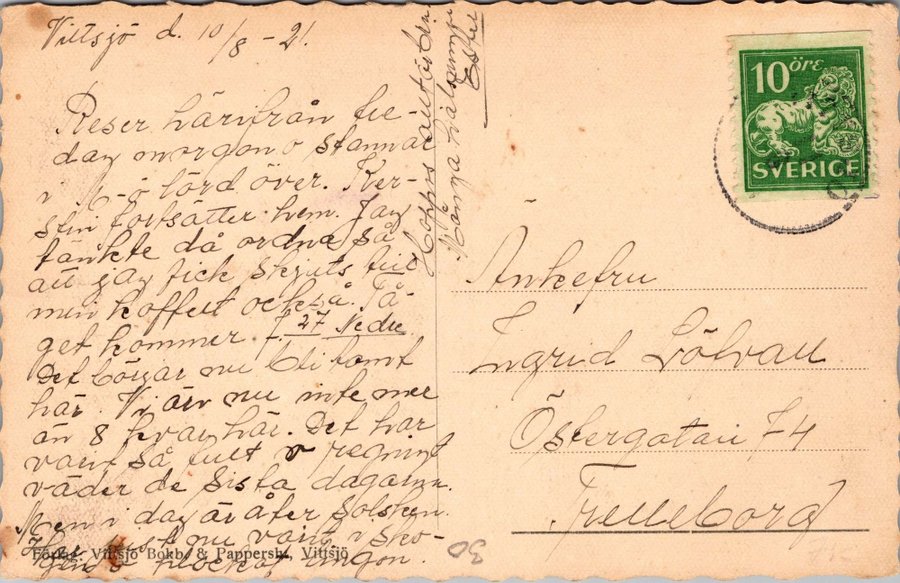 Vittsjö d. 10/8 - 21.
Reser härifrån fre-
dag morgon o stannar
i M-ö lörd över. Ker-
stin fortsätter hem. Jag
tänkte då ordna så
att jag fick skjuts till
min koffert också. Tå-
get kommer 7 27 Nedre
Det börjar nu bli tomt
här. Vi är nu inte mer
än 8 kvar här. Det har
varit så fult o regnigt
väder de sista dagarna.
Men i dag är åter solsken.
Har just nu varit i sko-
gen o plockat lingon.
Hoppas allt är bra.
Många hälsningar
10 öre
SVERIGE
Änkefru
Ingrid
Östergatan 74
Trelleborg
Förlag: Vittsjö Bokh. & Pappersh., Vittsjö
30